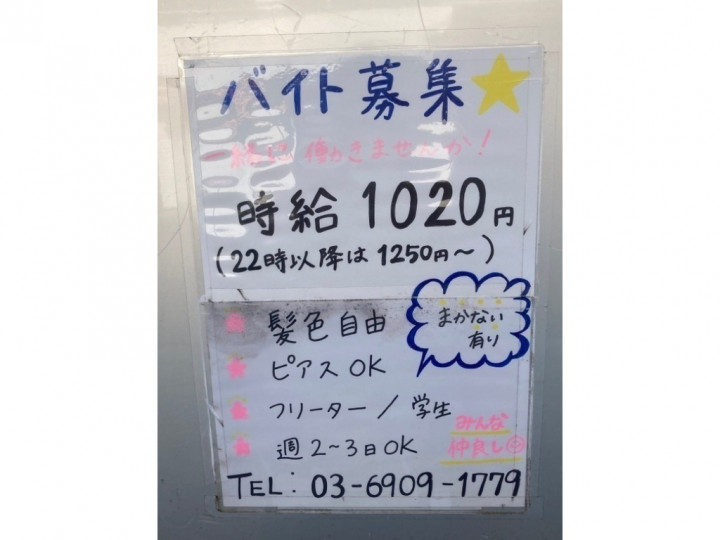 バイト募集
一緒に働きませんか!
時給1020円
(22時以降は1250円~)
まかない
有り
髪色自由
ピアスOK
フリーター/学生
週2~3日OK
みんな
仲良し
TEL:03-6909-1779